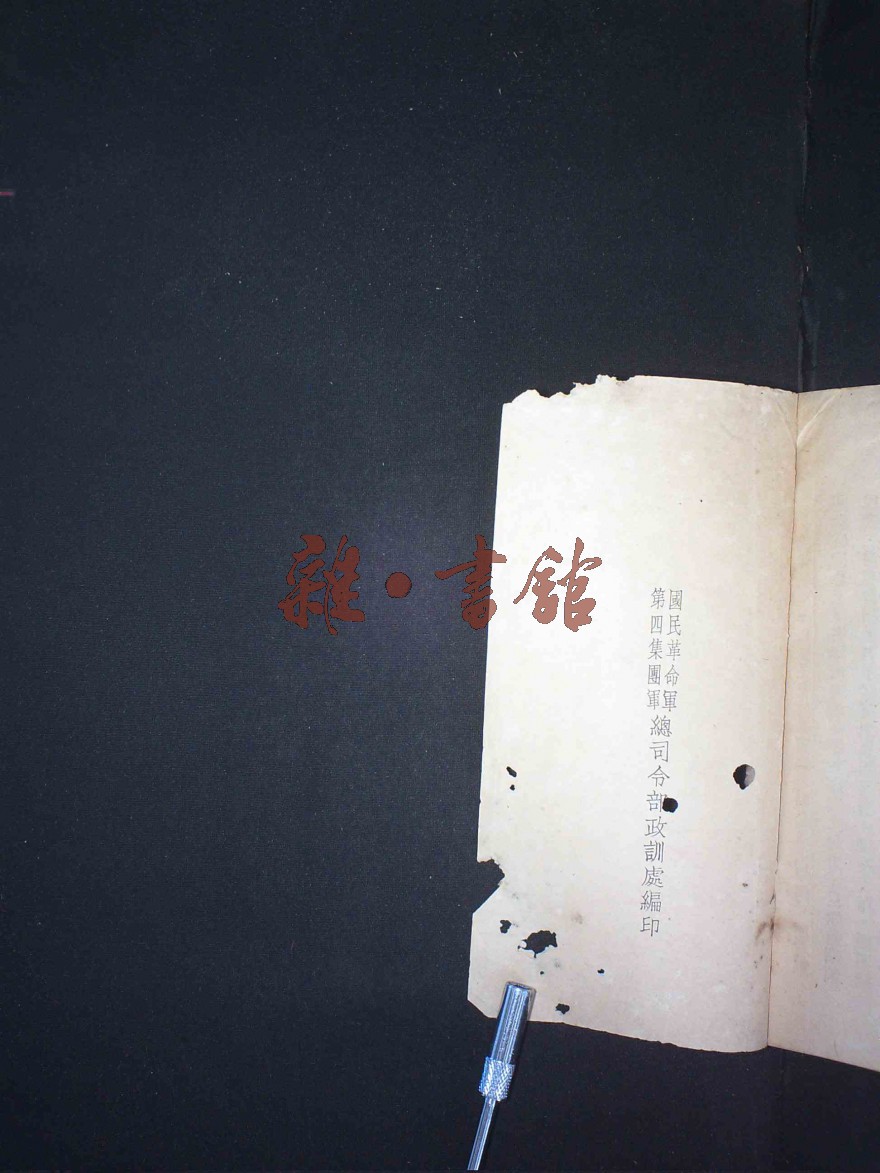 國民革命軍
第四集團軍
總司令部政訓處編印
雜·書館